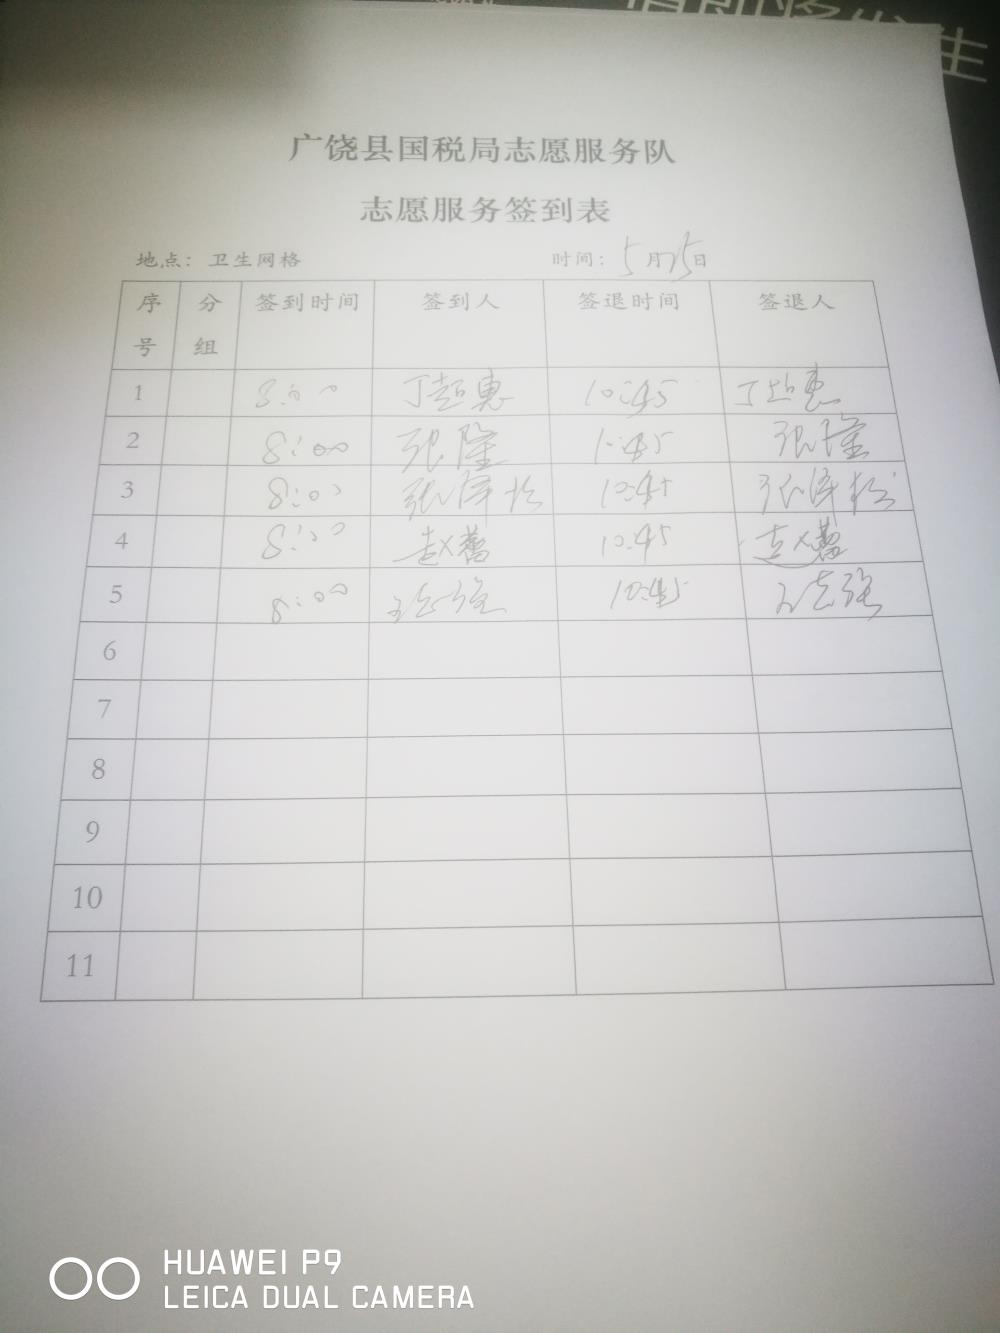 广饶县国税局志愿服务队
志愿服务签到表
地点：卫生网格 时间：5月25日
序号 分组 签到时间 签到人 签退时间 签退人
1 8:00 丁超惠 10:45 丁超惠
2 8:00 张隆 10:45 张隆
3 8:00 张泽松 10:45 张泽松
4 8:00 赵蕾 10:45 赵蕾
5 8:00 王志强 10:45 王志强
6
7
8
9
10
11
HUAWEI P9
LEICA DUAL CAMERA